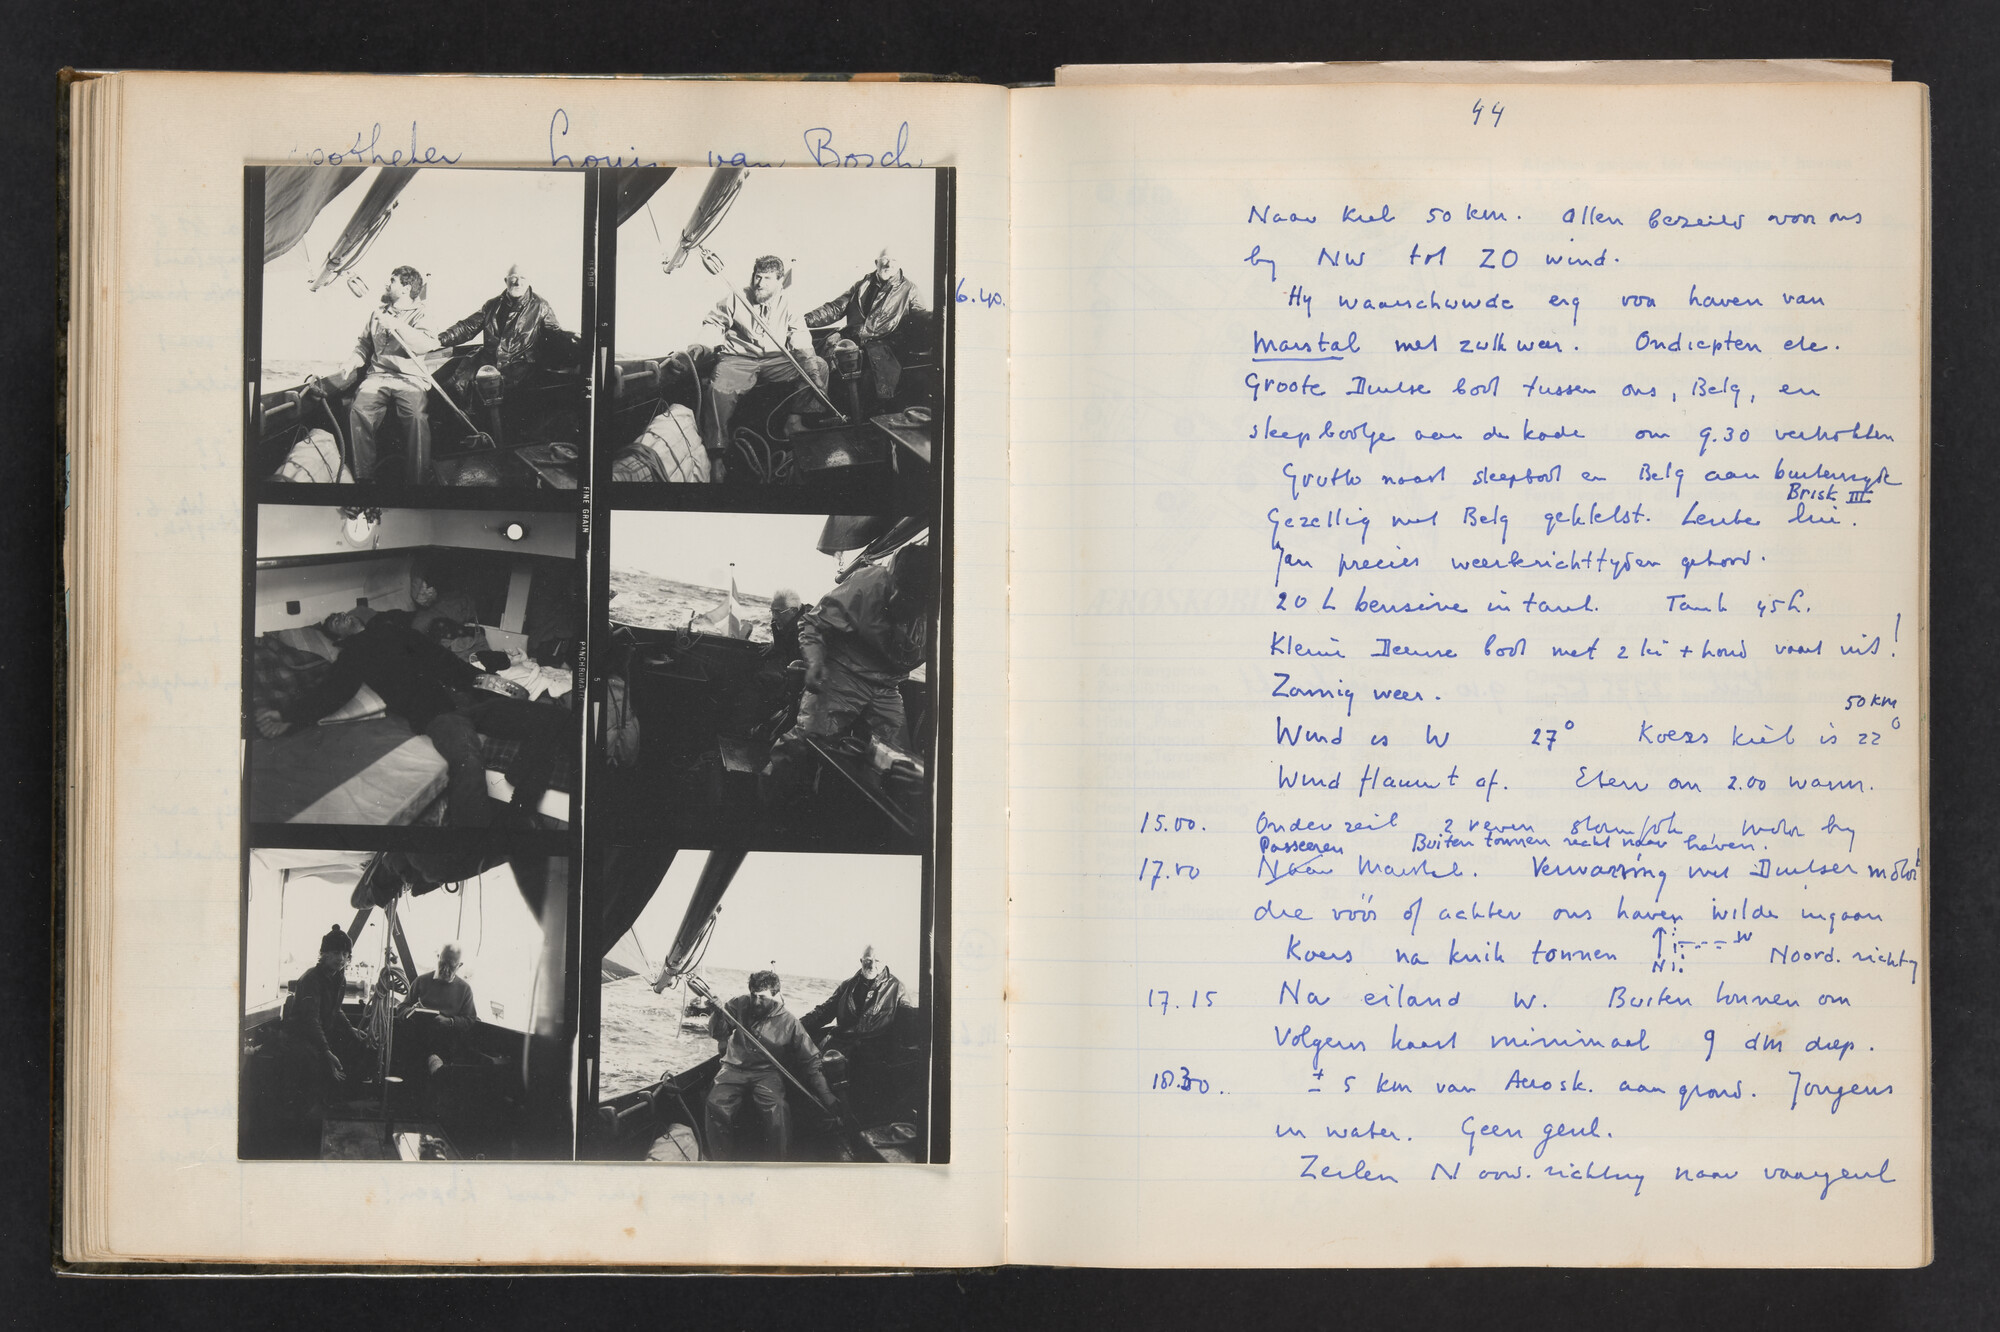 Louis van Bosch
6.40.
FINE GRAIN
PANCHROMATI
44
Naar Kiel 50 km. Alleen bezeild voor ons
by NW tot ZO wind.
Hy waarschuwde erg voor haven van
Marstal met zulk weer. Ondiepten etc.
Groote Duitse boot tussen ons, Belg, en
sleepbootje aan de kade om 9.30 vertrokken
Grutto naast sleepboot en Belg aan buitenzyde
Brisk III
Gezellig met Belg gekletst. Leuke lui.
Jan precies weerberichttyden gehoord.
20 L bensine in tank. Tank 45 L.
Kleine Deense boot met 2 ki + hond vaart uit!
Zonnig weer.
50 km
Wind is W 27° Koers Kiel is 22°
Wind flaut af. Eten om 2.00 warm.
15.00. Onder zeil 2 reven stormfok, motor by
Passeeren Buiten tonnen recht naar haven.
17.00 Naar Marstal. Verwarring met Duitser motor
die vóór of achter ons haven wilde ingaan
Koers na knik tonnen N W Noord. richtg
17.15 Na eiland W. Buiten tonnen om
Volgens kaart minimaal 9 dm diep.
18.30. ± 5 km van Aerosk. aan grond. Jongens
in water. Geen geul.
Zeilen Noord. richting naar vaargeul